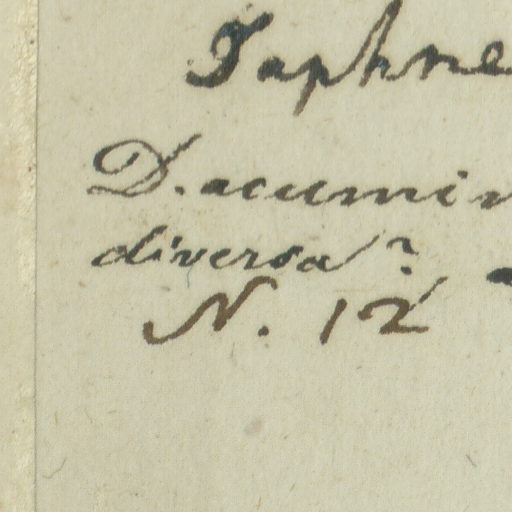 Daphne
D. acumin
diversa?
N. 12